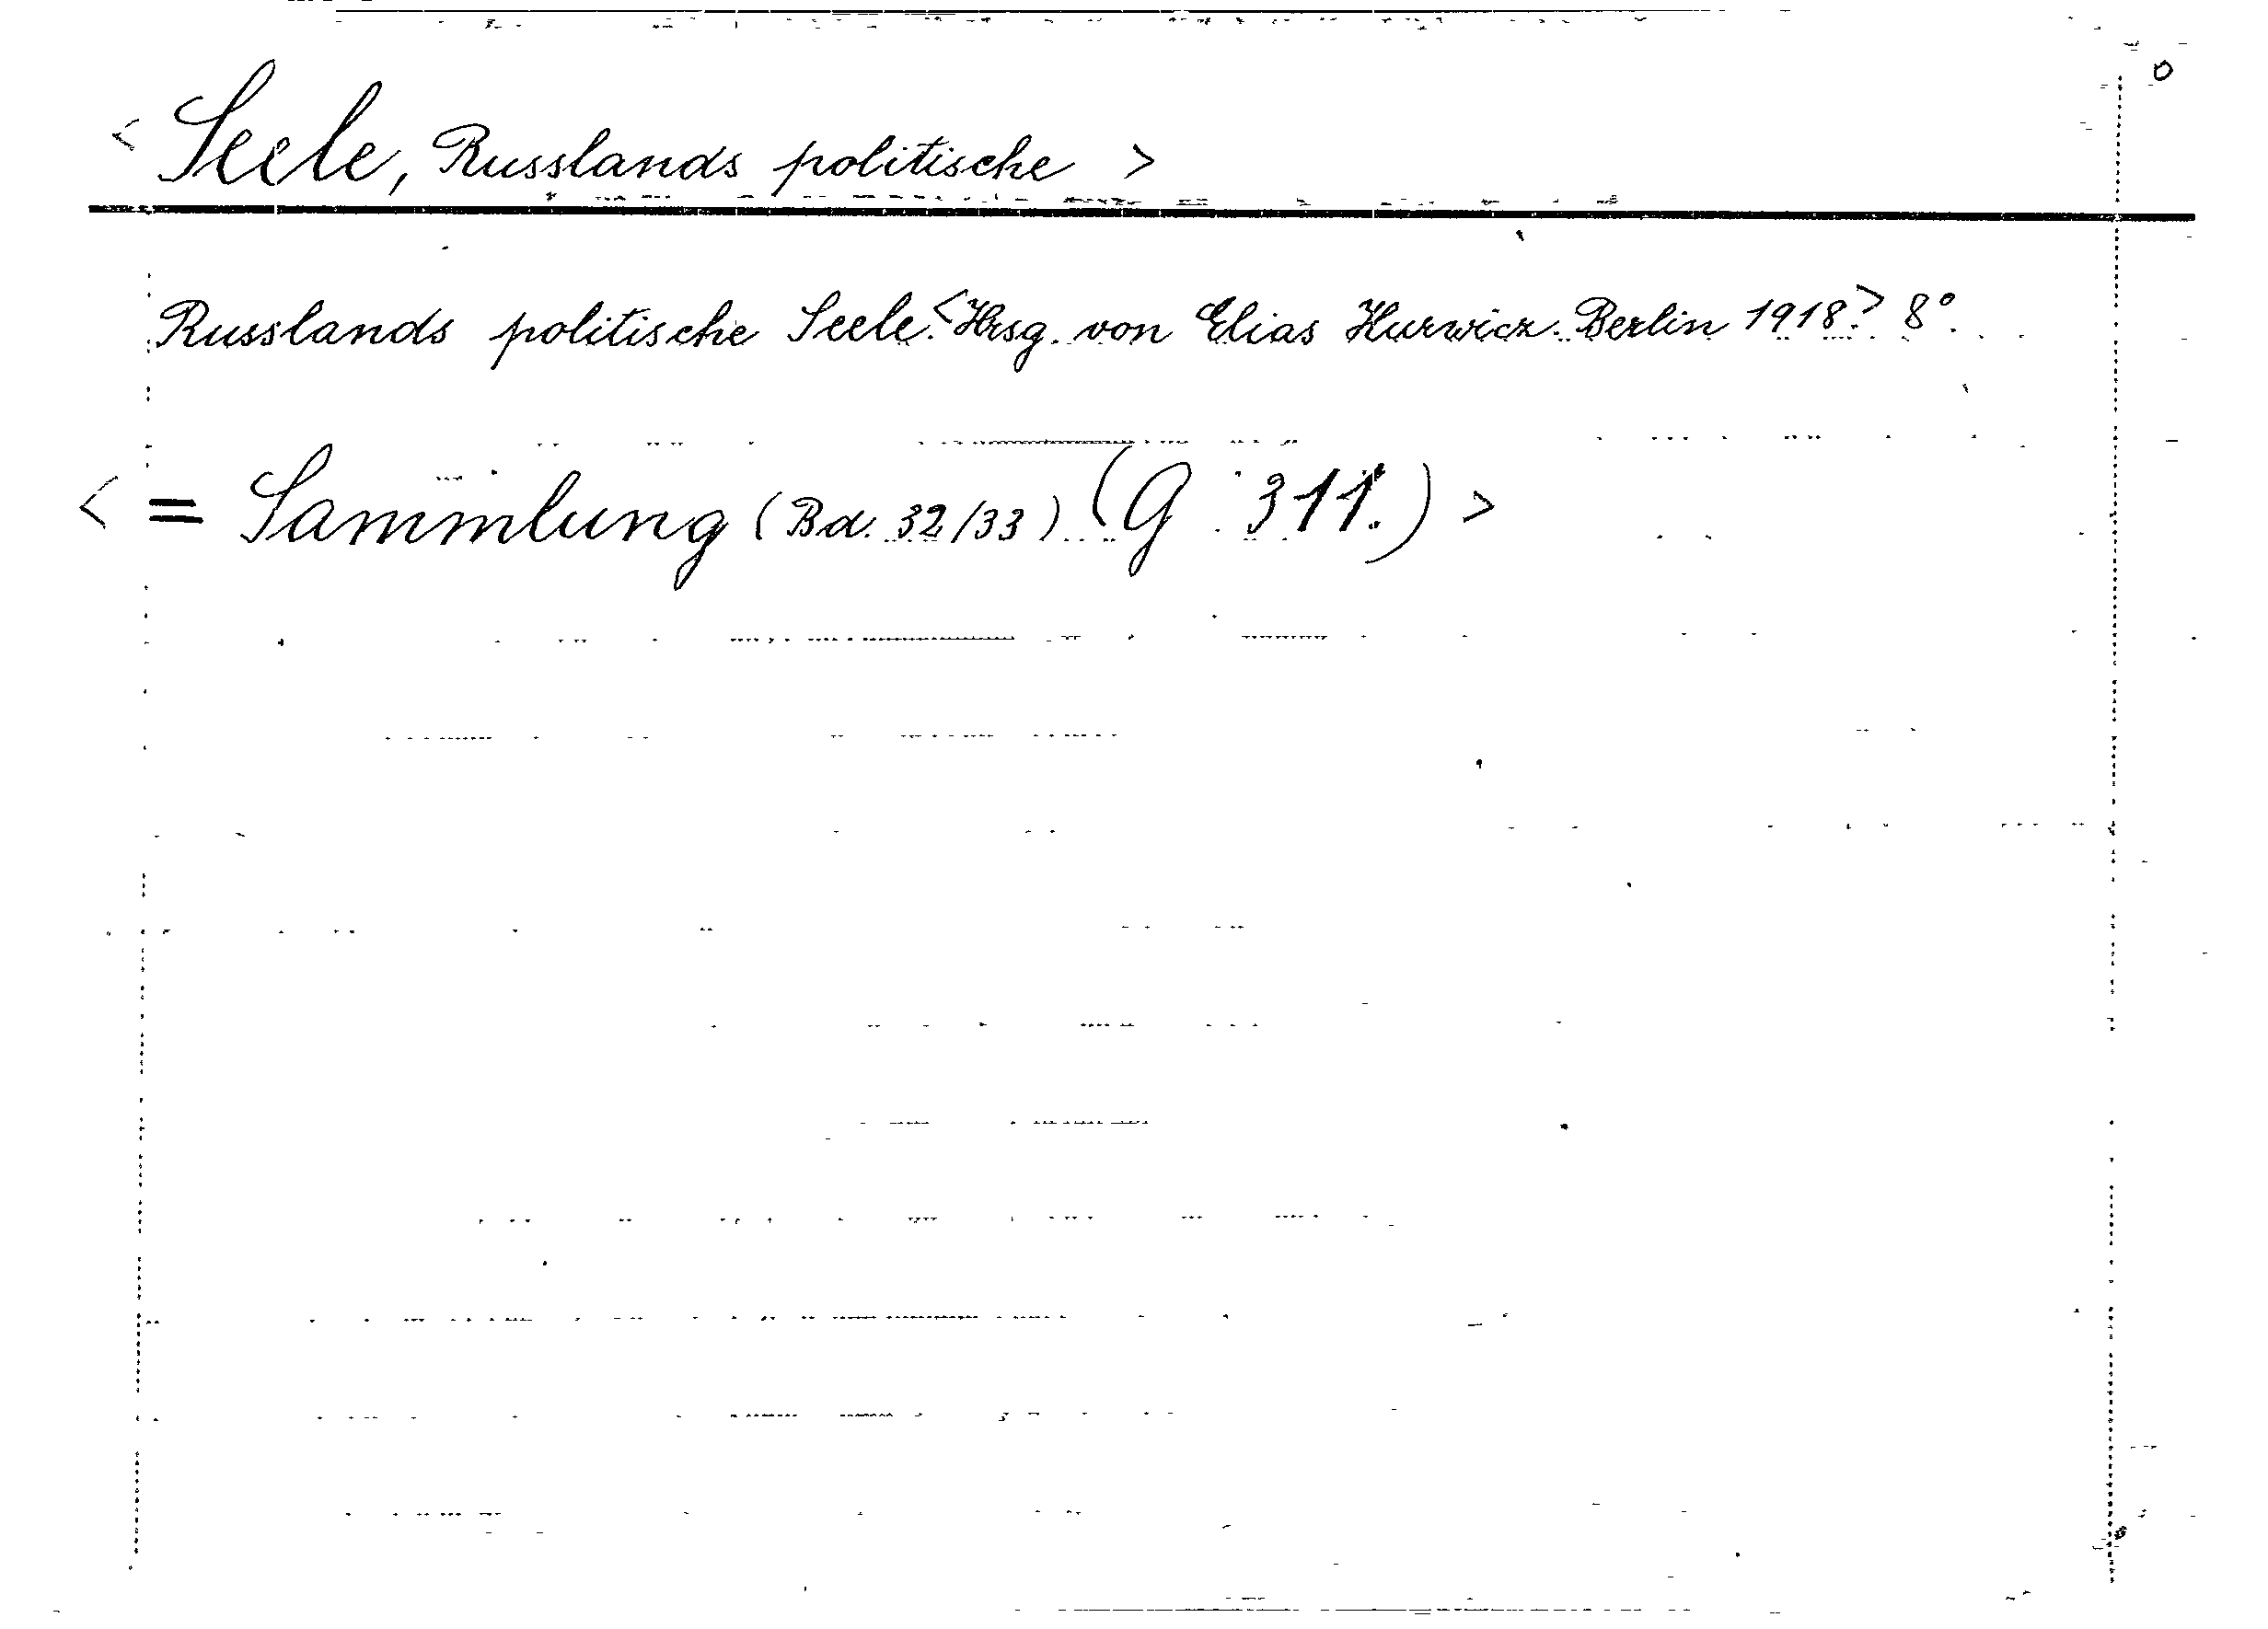 0
< Seele, Russlands politische >
Russlands politische Seele. <Hrsg. von Elias Hurwicz. Berlin 1918.> 8°.
< = Sammlung (Bd. 32/33) (G 311.) >